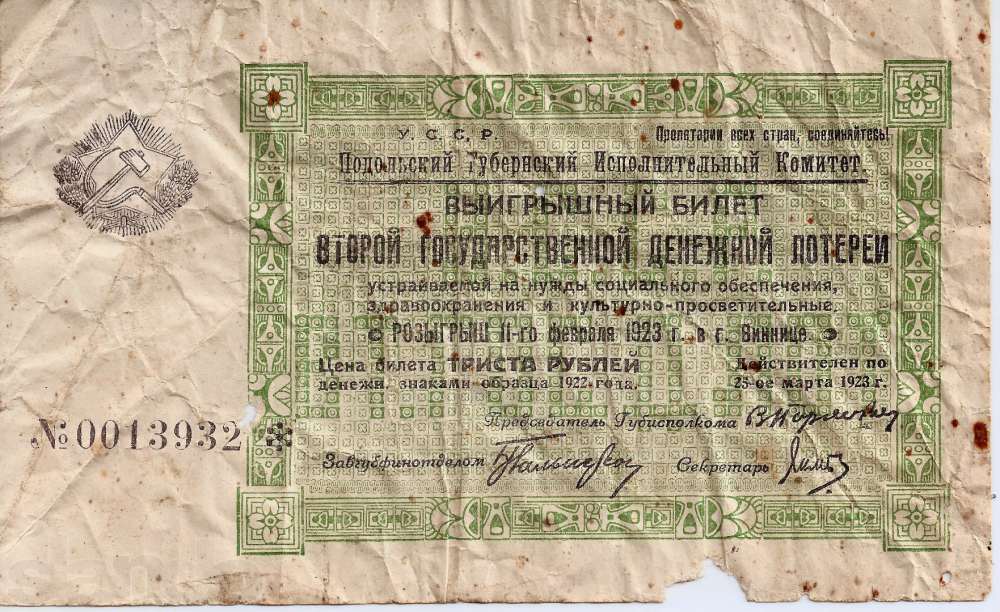 У. С. С. Р.
Пролетарии всех стран, соединяйтесь!
Подольский Губернский Исполнительный Комитет
ВЫИГРЫШНЫЙ БИЛЕТ
ВТОРОЙ ГОСУДАРСТВЕННОЙ ДЕНЕЖНОЙ ЛОТЕРЕИ
устраиваемой на нужды социального обеспечения,
здравоохранения и культурно-просветительные.
РОЗЫГРЫШ 11-го февраля 1923 г. в г. Виннице.
Цена билета ТРИСТА РУБЛЕЙ
денежн. знаками образца 1922 года.
Действителен по
25-ое марта 1923 г.
Председатель Губисполкома
№ 0013932
Завгубфинотделом
Секретарь